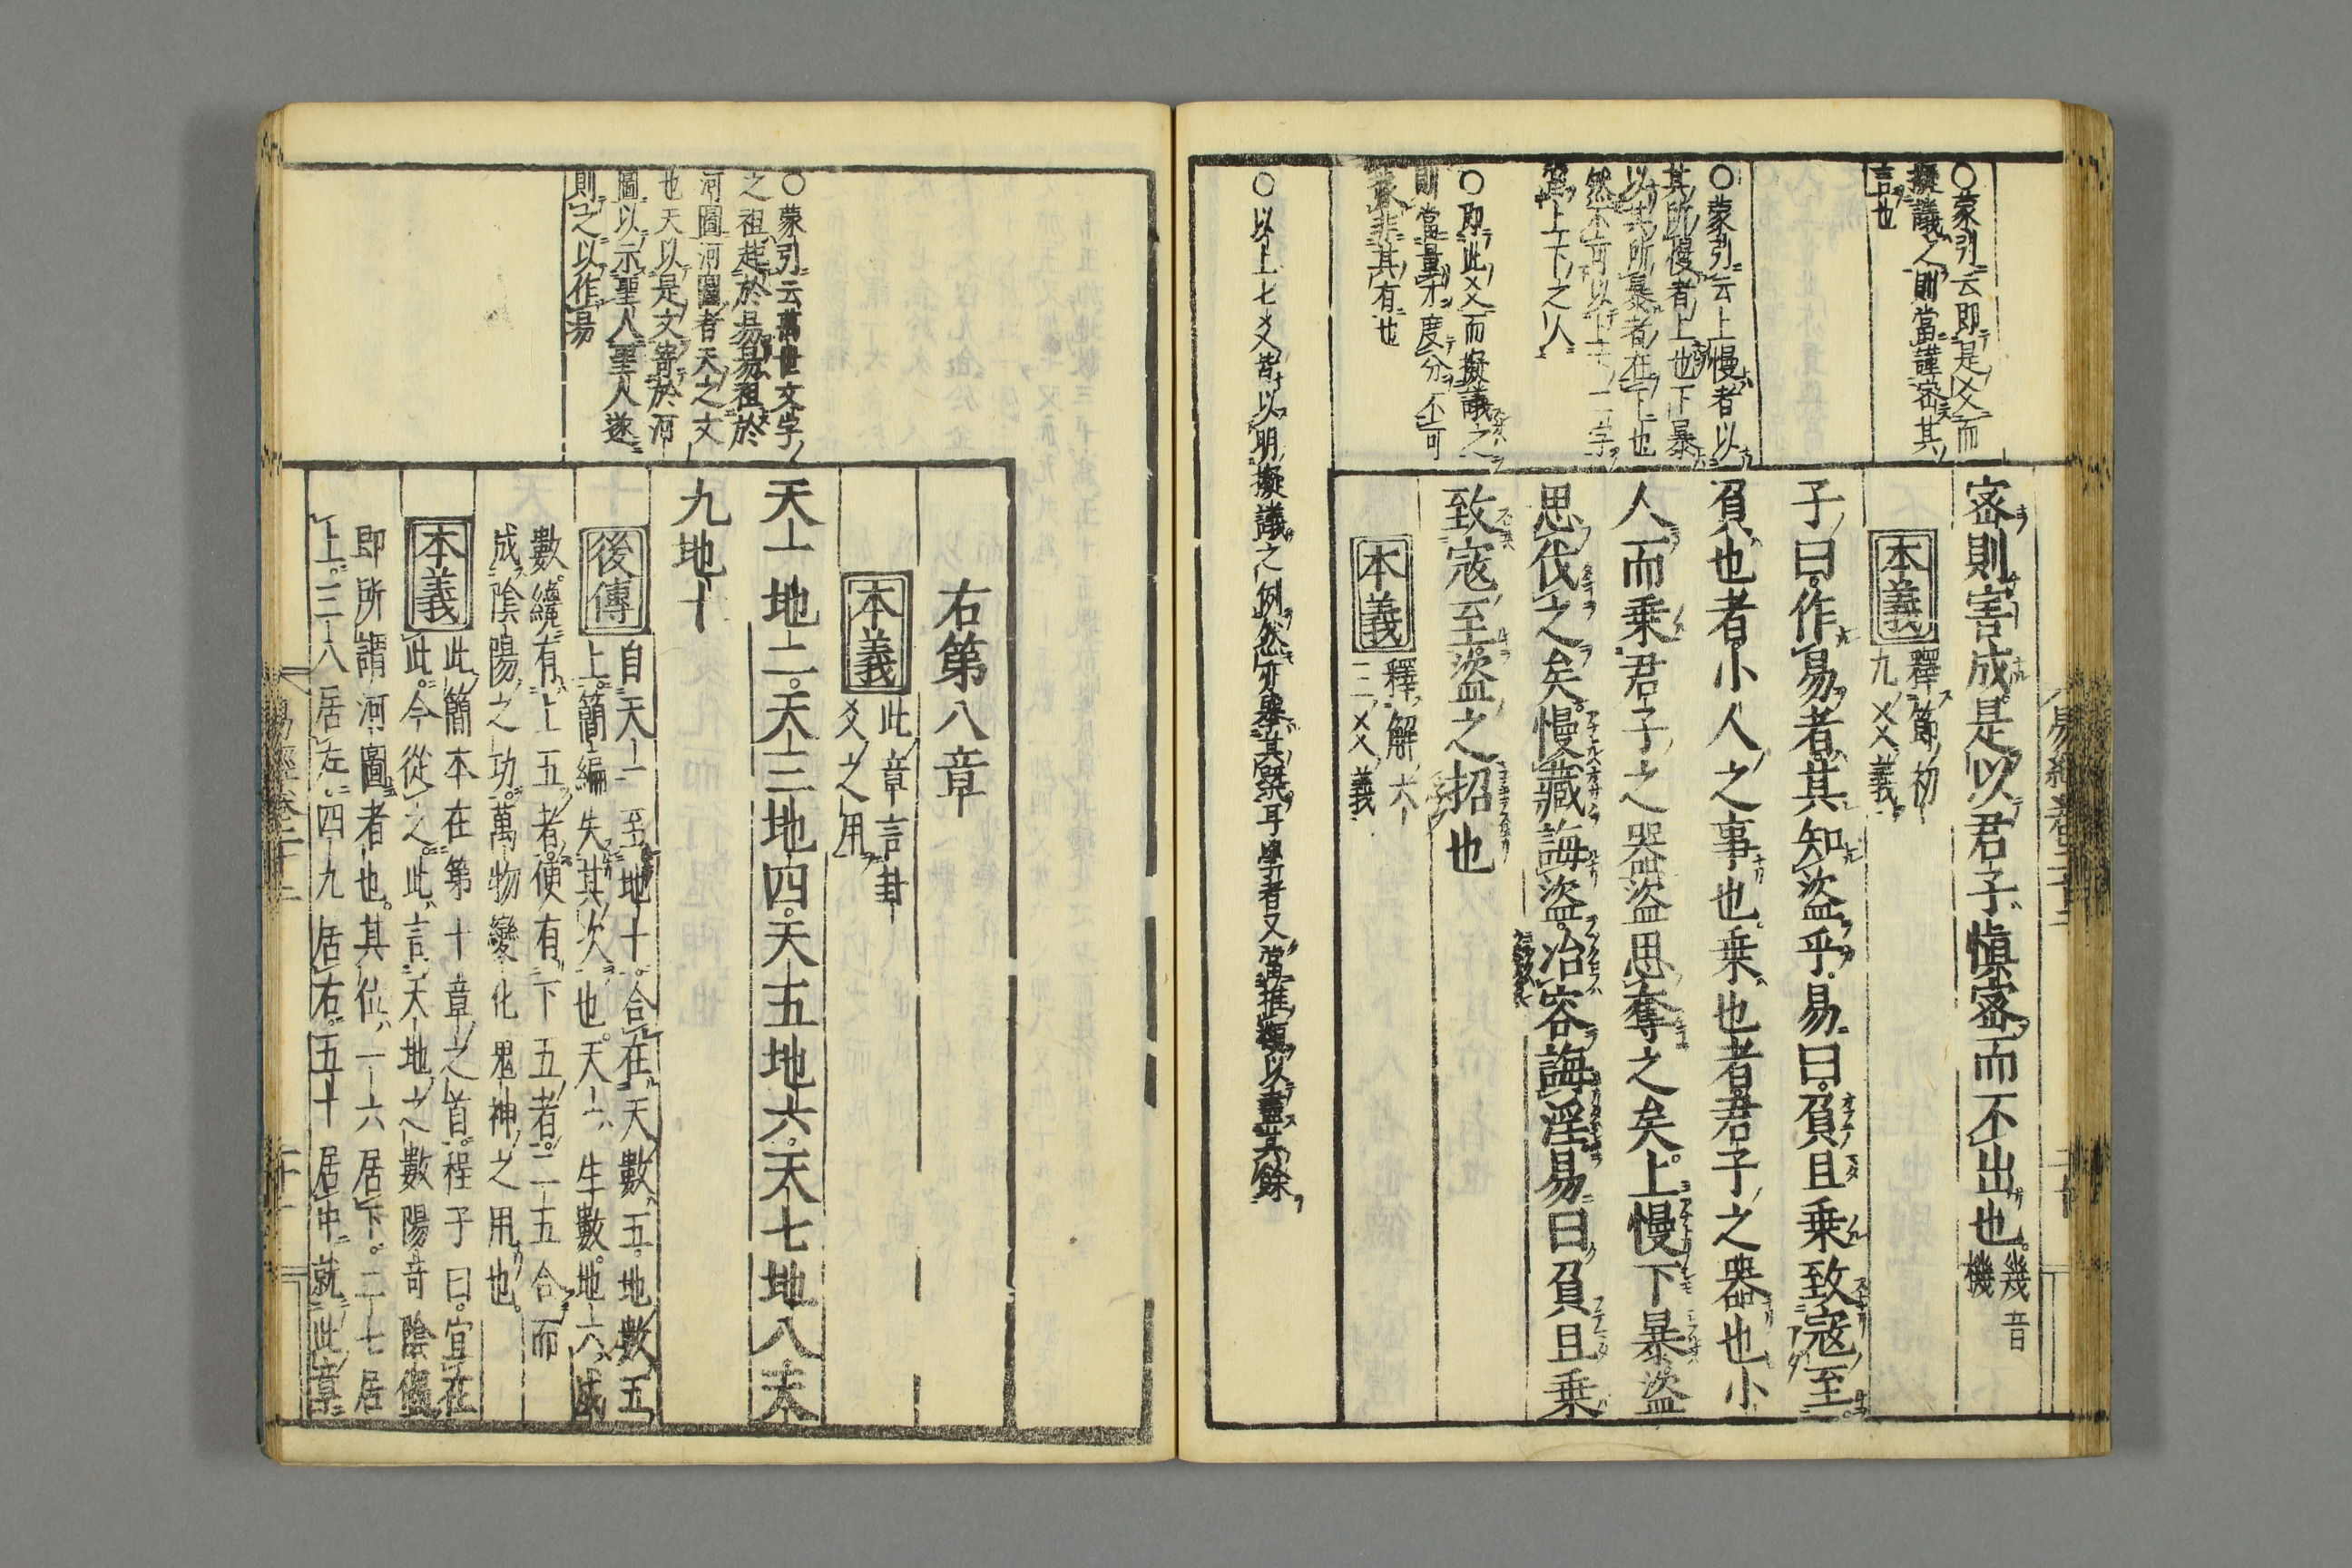 密則害成是以君子愼密而不出也。幾音機
本義 釋節初九爻義
子曰。作易者。其知盜乎。易曰。負且乘致寇至。
負也者。小人之事也。乘也者。君子之器也小
人而乘君子之器盜思奪之矣。上慢下暴盜
思伐之矣。慢藏誨盜。冶容誨淫。易曰負且乘
致寇至。盜之招也
本義 釋解六三爻義
○蒙引云即是爻而
擬議之則當謹密其
言也
○蒙引云上慢者以
其所慢者上也下暴
以其所暴者在下也
然不可以上下二字
爲上下之人
○即此爻而擬議之
則當量才度分不可
䝉非其有也
○以上七爻皆以明擬議之例然亦畧舉其槩耳學者又當推類以盡其餘
右第八章
本義 此章言卦
爻之用
天一地二。天三地四。天五地六。天七地八。天
九地十
後傳 自天一至地十。合在天數五。地數五
上。簡編失其次也。天一生數。地六成
數。纔有上五者。便有下五者。二五合而
成陰陽之功。萬物變化鬼神之用也。
本義 此簡本在第十章之首。程子曰。宜在
此。今從之。此言天地之數陽奇陰偶
即所謂河圖者也。其位一六居下。二七居
上。三八居左。四九居右。五十居中就此章
○蒙引云萬世文字
之祖起於易易祖於
河圖河圖者天之文
也天以是文寄於河
圖以示聖人聖人遂
則之以作易
易經卷二十二